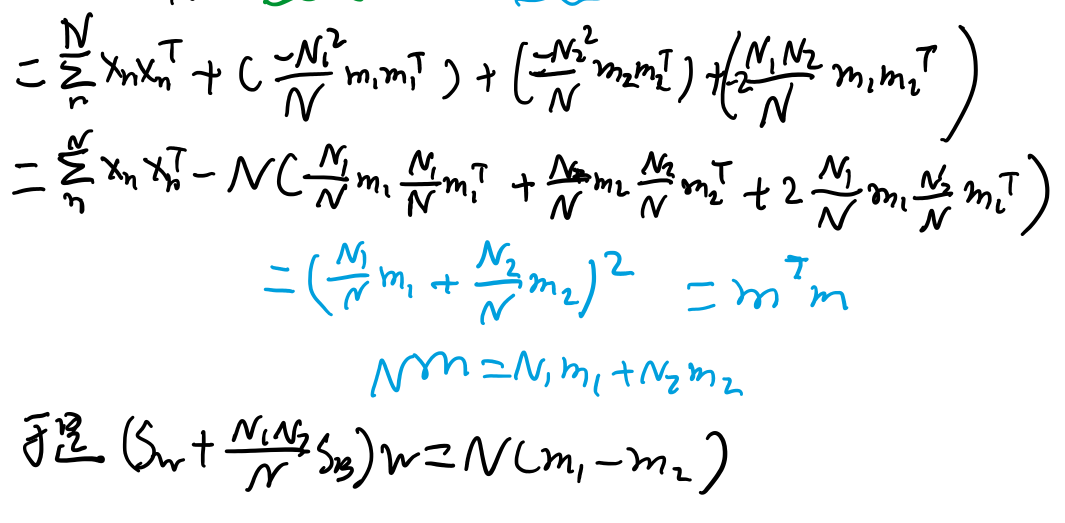 = \sum_{n}^{N} x_n x_n^T + ( \frac{-N_1^2}{N} m_1 m_1^T ) + ( \frac{-N_2^2}{N} m_2 m_2^T ) + ( -2 \frac{N_1 N_2}{N} m_1 m_2^T )
= \sum_{n}^{N} x_n x_n^T - N ( \frac{N_1}{N} m_1 \frac{N_1}{N} m_1^T + \frac{N_2}{N} m_2 \frac{N_2}{N} m_2^T + 2 \frac{N_1}{N} m_1 \frac{N_2}{N} m_2^T )
= ( \frac{N_1}{N} m_1 + \frac{N_2}{N} m_2 )^2 = m^T m
N m = N_1 m_1 + N_2 m_2
于是 ( S_w + \frac{N_1 N_2}{N} S_B ) w = N ( m_1 - m_2 )